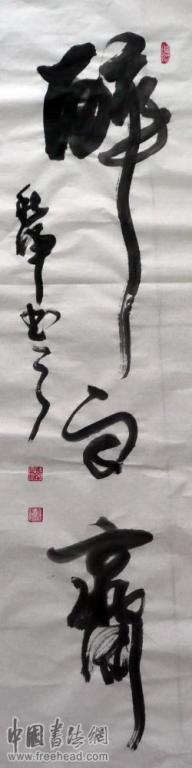 醉白齋
书之
中國書法網
www.freehead.com